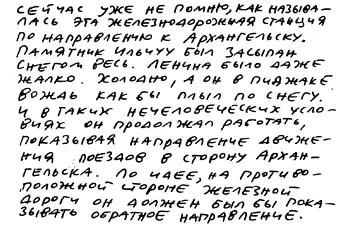 СЕЙЧАС УЖЕ НЕ ПОМНЮ, КАК НАЗЫВА-
ЛАСЬ ЭТА ЖЕЛЕЗНОДОРОЖНАЯ СТАНЦИЯ
ПО НАПРАВЛЕНИЮ К АРХАНГЕЛЬСКУ.
ПАМЯТНИК ИЛЬИЧУ БЫЛ ЗАСЫПАН
СНЕГОМ ВЕСЬ. ЛЕНИНА БЫЛО ДАЖЕ
ЖАЛКО. ХОЛОДНО, А ОН В ПИДЖАКЕ
ВОЖДЬ КАК БЫ ПЛЫЛ ПО СНЕГУ.
И В ТАКИХ НЕЧЕЛОВЕЧЕСКИХ УСЛО-
ВИЯХ ОН ПРОДОЛЖАЛ РАБОТАТЬ,
ПОКАЗЫВАЯ НАПРАВЛЕНИЕ ДВИЖЕ-
НИЯ ПОЕЗДОВ В СТОРОНУ АРХАН-
ГЕЛЬСКА. ПО ИДЕЕ, НА ПРОТИВО-
ПОЛОЖНОЙ СТОРОНЕ ЖЕЛЕЗНОЙ
ДОРОГИ ОН ДОЛЖЕН БЫЛ БЫ ПОКА-
ЗЫВАТЬ ОБРАТНОЕ НАПРАВЛЕНИЕ.